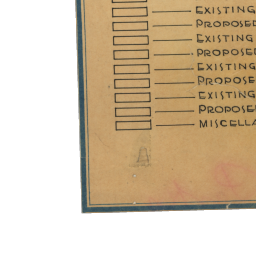 EXISTING
PROPOSE
EXISTING
PROPOSE
EXISTING
PROPOSE
EXISTING
PROPOSE
MISCELLA